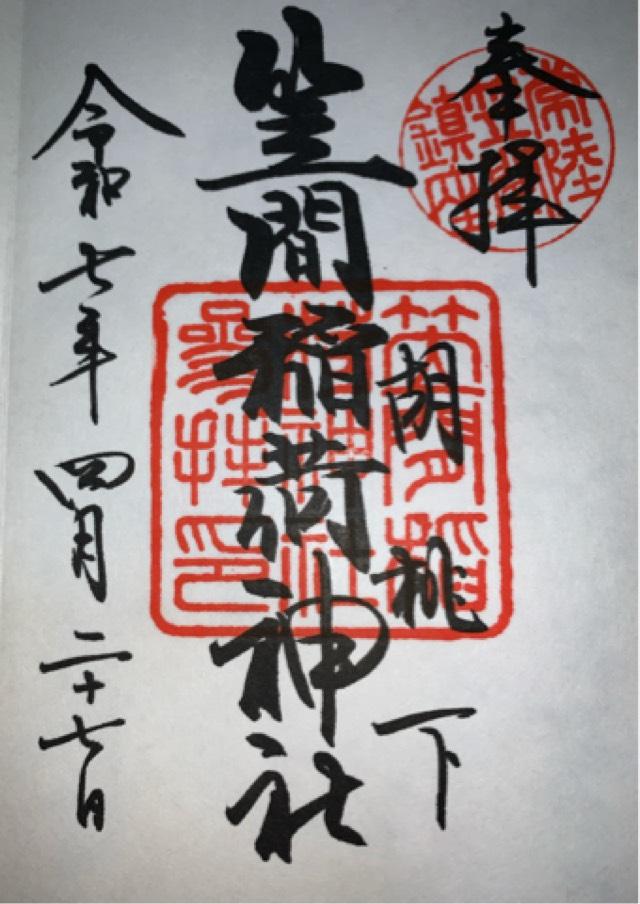 奉拝
常陸
笠間
鎮座
胡桃下
笠間稲荷神社
笠間稲
荷神社
參拝印
令和七年四月二十七日